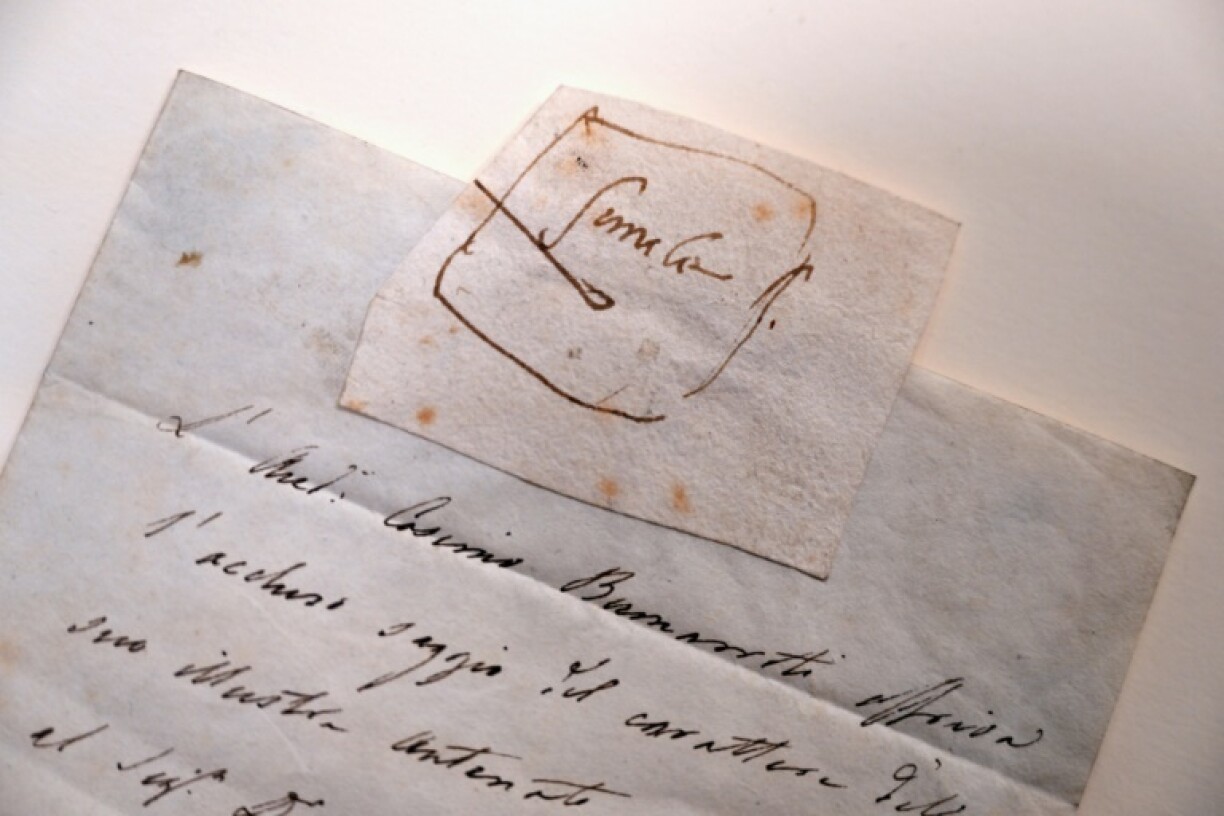 simile
L' Cosimo Buonarroti offriva
l' accluso saggio del carattere
suo illustre antenato
al Sigr